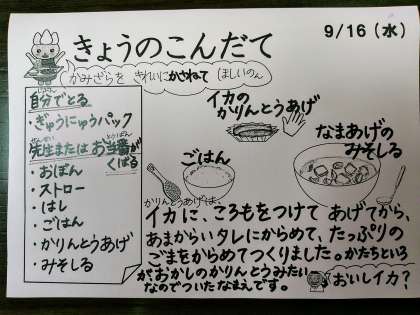 9/16（水）
きょうのこんだて
かみざらを きれいにかさねて ほしいのん
じぶん
自分でとる
・ぎゅうにゅうパック
せんせい とうばん
先生または お当番が
くばる
・おぼん
・ストロー
・はし
・ごはん
・かりんとうあげ
・みそしる
イカの
かりんとうあげ
ごはん
なまあげの
みそしる
かりんとうあげは、
イカに、ころもをつけて あげてから、
あまからいタレにからめて、たっぷりの
ごまをからめてつくりました。かたちといろ
がおかしのかりんとうみたい
なのでついたなまえです。
おいしイカ？